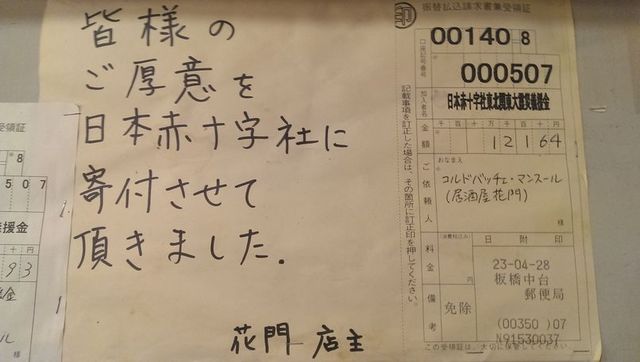 皆様の
ご厚意を
日本赤十字社に
寄付させて
頂きました.
花門 店主
振替払込請求書兼受領証
口座記号番号
00140 8
000507
加入者名
日本赤十字社東北関東大震災義援金
金額
千 百 十 万 千 百 十 円
12164
ご依頼人
おなまえ
コルドバッチェ・マンスール
(居酒屋花門)
様
料金
(消費税込み)
円
日附印
23-04-28
板橋中台
郵便局
備考
免除
(00350)07
N91530037
記載事項を訂正した場合は、その箇所に訂正印を押してください。
この受領証は、大切に保管してください。
受領証
8
507
援金
十 円
93
様